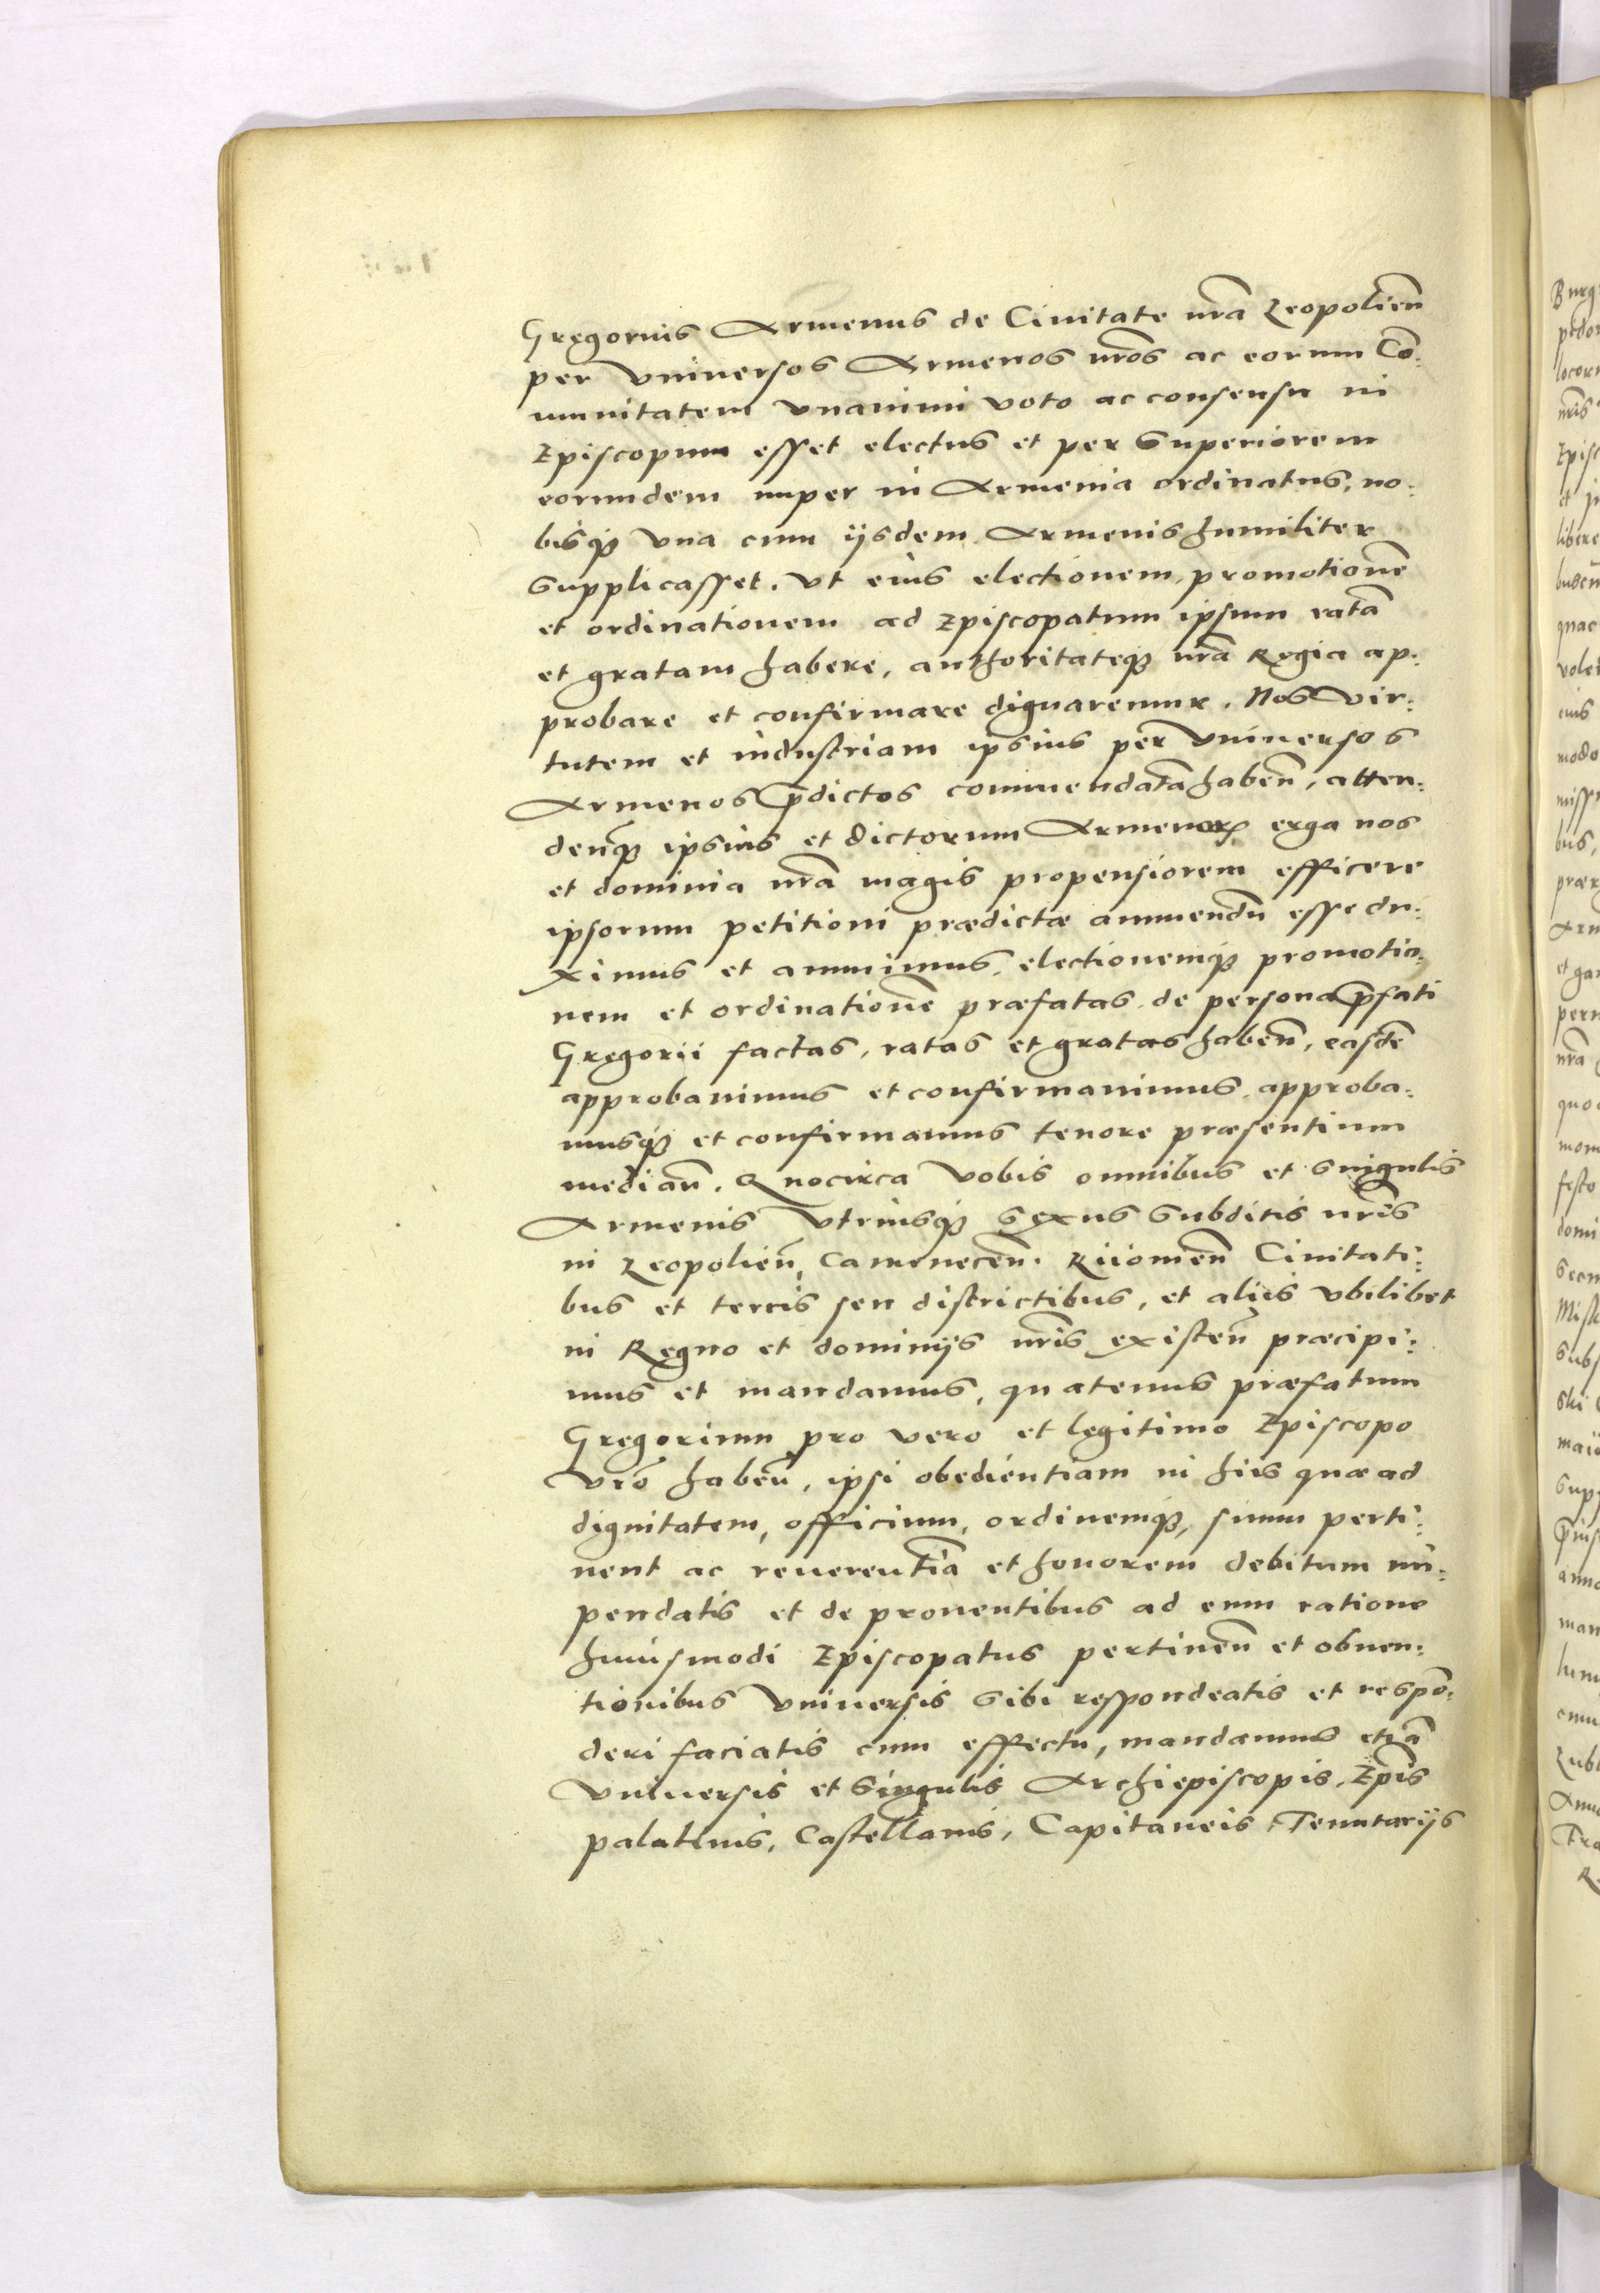 Gregorius Armenus de Ciuitate nr̃a Leopolien̄
per vniuersos Armenos nr̃os ac eorum Cō:
munitatem vnanimi voto ac consensu in
Episcopum esset electus et per superiorem
eorundem nuper in Armenia ordinatus, no:
bisq3 vna cum ijsdem Armenis humiliter
supplicasset. Vt eius electionem, promotionē
et ordinationem ad Episcopatum ipsum ratā
et gratam habere, authoritateq3 nr̃a Regia ap:
probare et confirmare dignaremur. Nos vir:
tutem et industriam ipsius per vniuersos
Armenos p̄dictos commendatā haben̄, atten:
den̄q3 ipsius et dictorum Armenorꝝ erga nos
et dominia nr̃a magis propensiorem efficere
ipsorum petitioni prædictæ annuendū esse du:
ximus et annuimus, electionemq3 promotio:
nem et ordinationē præfatas de persona p̄fati
Gregorii factas, ratas et gratas haben̄, easdē
approbauimus et confirmauimus, approba:
musq3 et confirmamus tenore præsentium
median̄. Quocirca vobis omnibus et singulis
Armenis vtriusq3 sexus subditis nr̃is
in Leopolien̄, Camenecen̄. Kiiomen̄ Ciuitati:
bus et terris seu districtibus, et aliis vbilibet
in Regno et dominijs nr̃is existen̄ præcipi:
mus et mandamus, quatenus præfatum
Gregorium pro vero et legitimo Episcopo
vr̃o haben̄, ipsi obedientiam in hiis quæ ad
dignitatem, officium, ordinemq3, suum perti:
nent ac reuerentiā et honorem debitum im:
pendatis et de prouentibus ad eum ratione
huiusmodi Episcopatus pertinen̄ et obuen:
tionibus vniuersis sibi respondeatis et respō:
deri faciatis cum effectu, mandamus etiā
vniuersis et singulis Archiepiscopis, Ep̄is
palatinis, Castellanis, Capitaneis, Tenutarijs